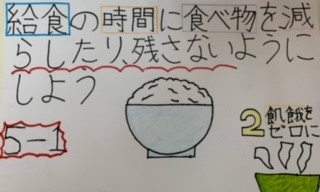 給食の時間に食べ物を減
らしたり、残さないように
しよう
5-1
2 飢餓を
ゼロに